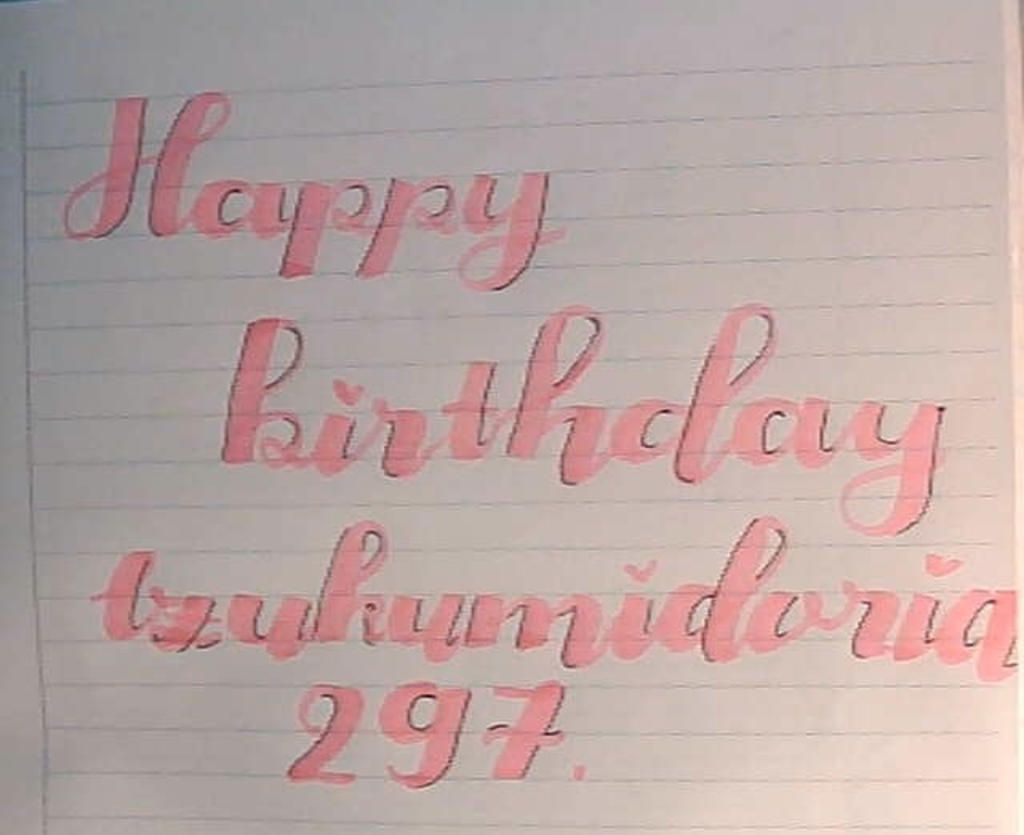 Happy
birthday
tzukumidoria
297.